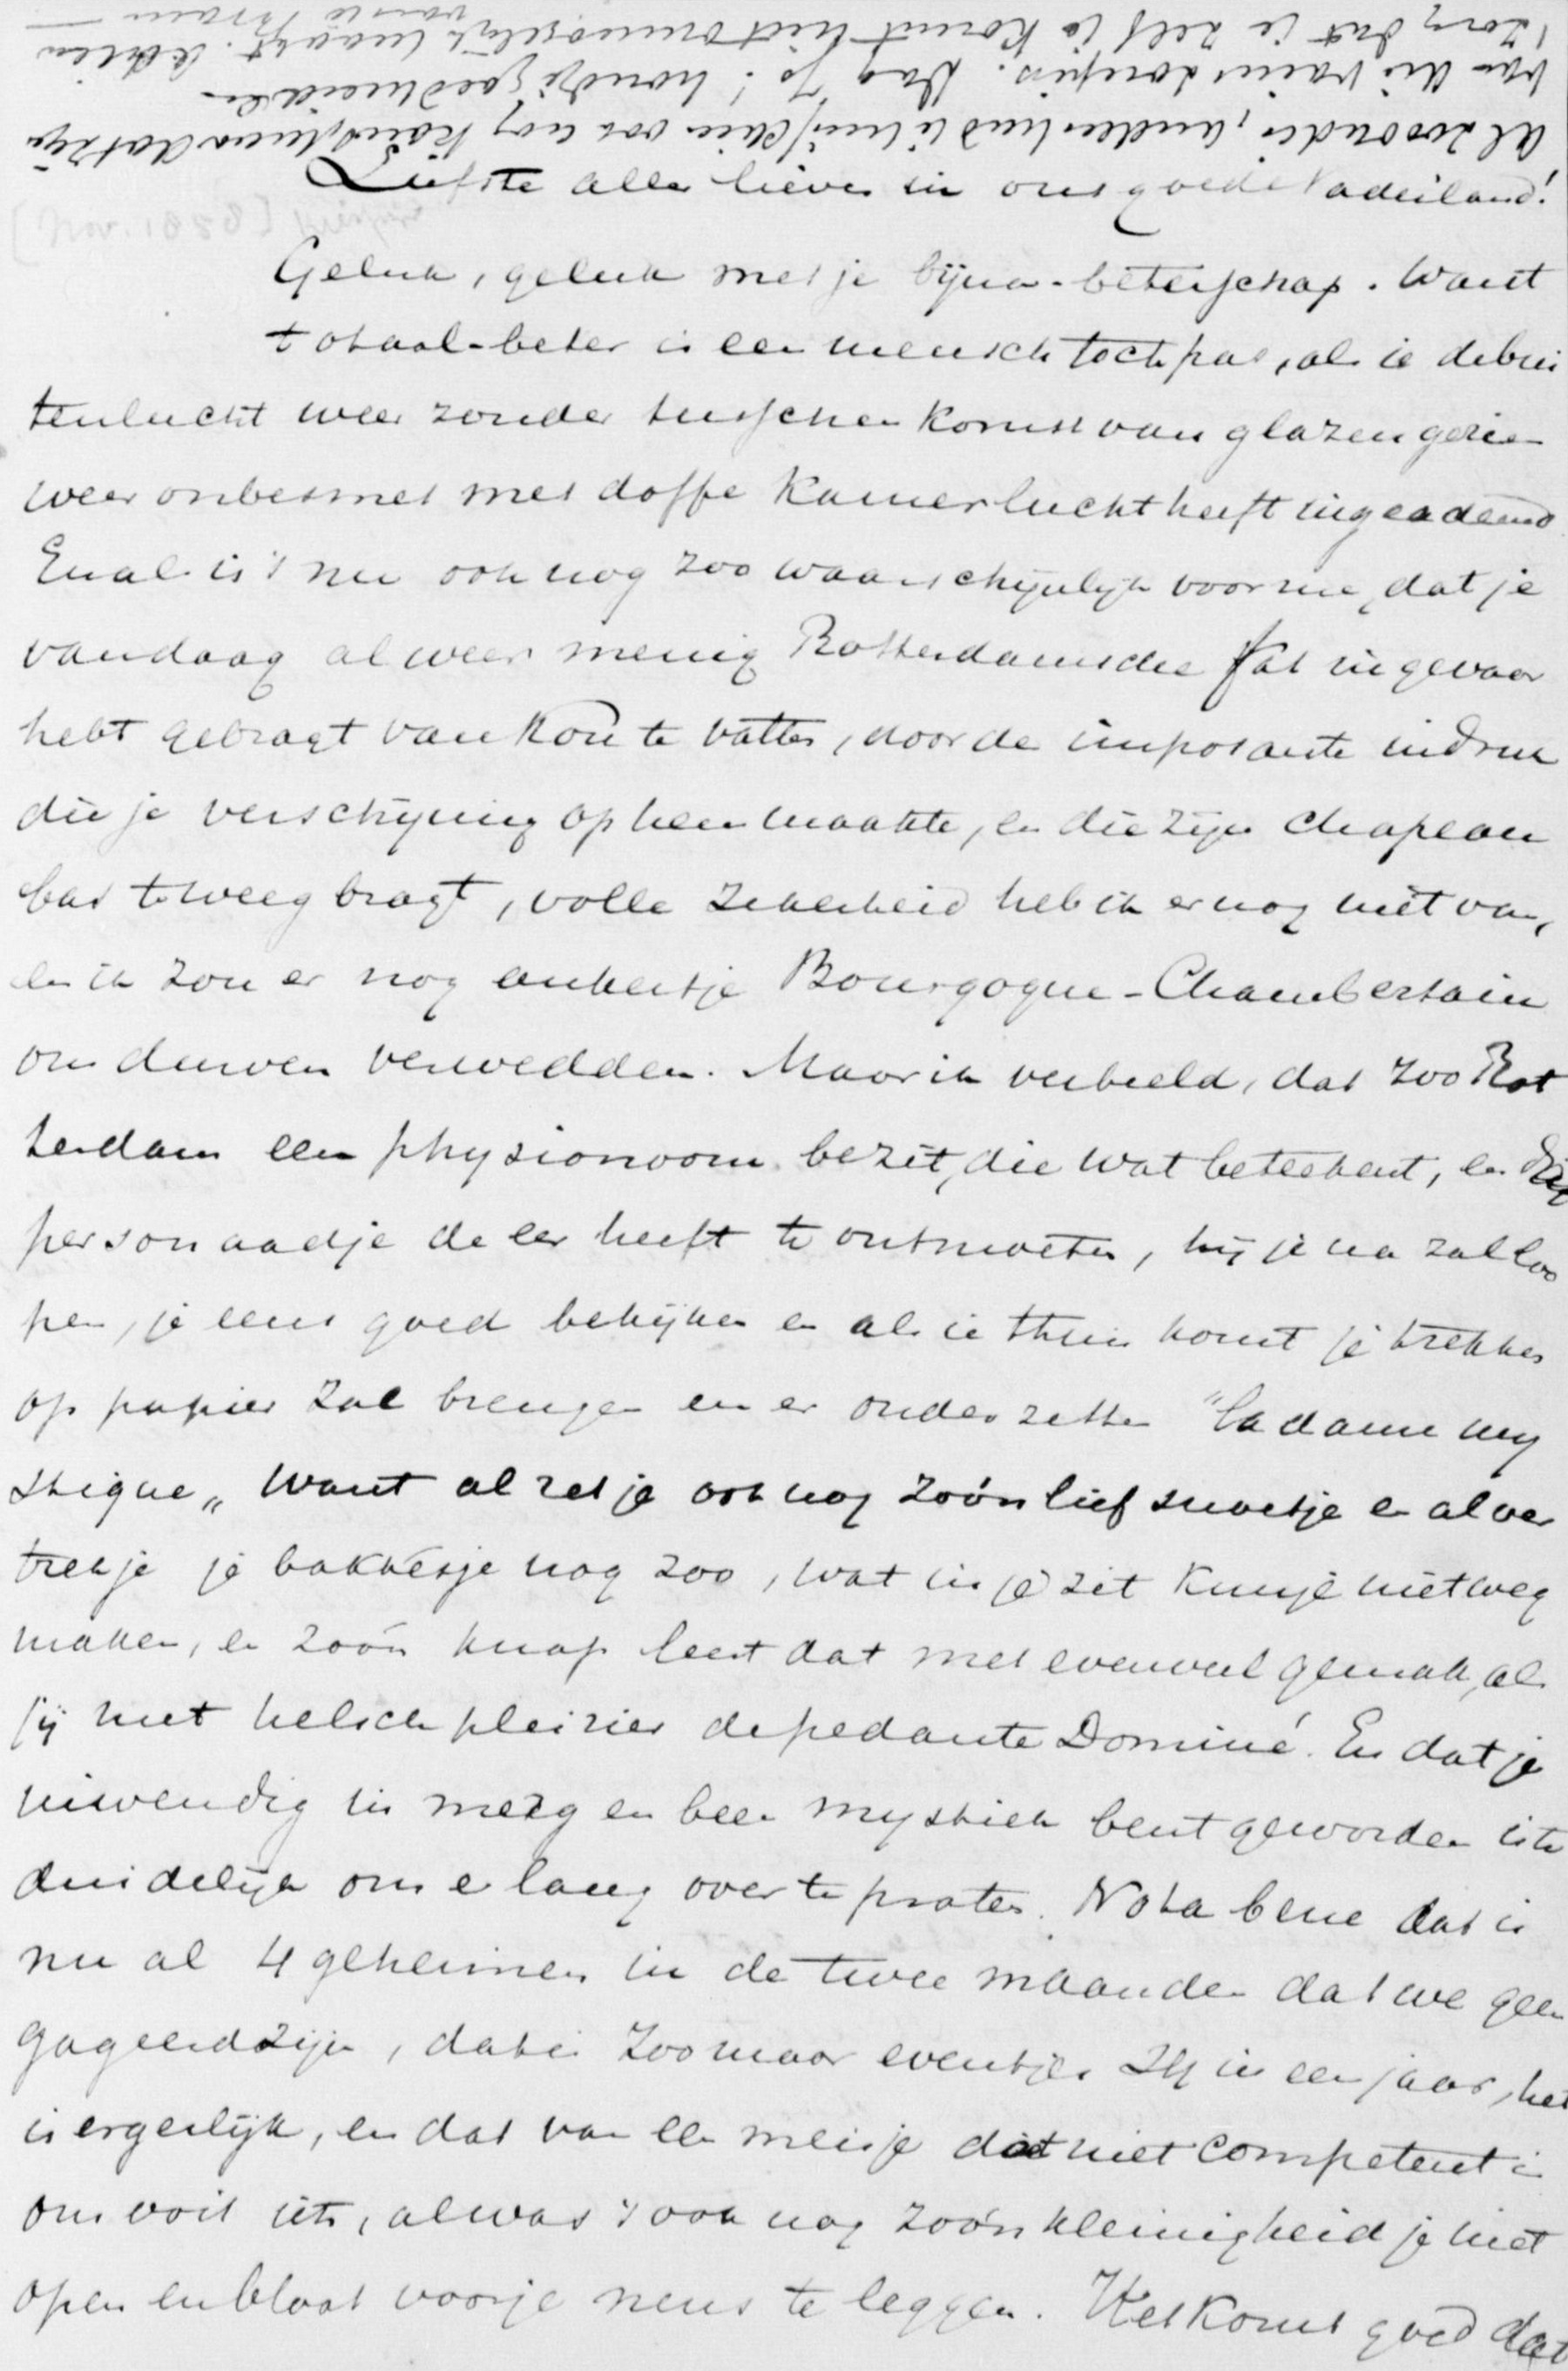 Liefste aller lieven in ons goede Vaderland!
[Nov. 1858]
Geluk, geluk met je bijna-beterschap. Want
totaal-beter is een mensch toch pas, als ie de bui
tenlucht weer zonder tusschenkomst van glazen gezien
weer onbesmet met doffe kamerlucht heeft ingeademd
En al is 't nu ook nog zoo waarschijnlijk voor me, dat je
vandaag al weer menig Rotterdamsche fat in gevaar
hebt gebragt van kou te vatten, door de imposante indruk
die je verschijning op hem maakte, en die zijn chapeau
bas teweegbragt, volle zekerheid heb ik er nog niet van,
en ik zou er nog ankertje Bourgogne-Chambertain
om durven verwedden. Maar ik verbeeld, dat zoo Rot
terdam een physionoom bezit, die wat beteekent, en die
personaadje de eer heeft te ontmoeten, hij je na zal loo
pen, je eens goed bekijken en als ie thuis komt je trekken
op papier zal brengen en er onder zetten "la dame my
stique" Want al zet je ook nog zoo'n lief snoetje en al ver
trek je je bakkesje nog zoo, wat in je zit kun je niet weg
maken, en zoo'n knap leest dat met evenveel gemak, als
jij met helsch pleizier de pedante Dominé. En dat je
inwendig in merg en been mystiek bent geworden is te
duidelijk om er lang over te praten. Nota bene dat is
nu al 4 geheimen in de twee maanden dat we geen
gageerd zijn, dat is zoo maar eventjes 24 in een jaar, het
is ergerlijk, en dat van een meisje dat niet competent is
om ooit iets, al was 't ook nog zoo'n kleinigheid je niet
open en bloot voor je neus te leggen. Het komt goed dat
al zoo onder, misschien ook nog kans, maar dat zijn
van die vaine dompies. Dag Jo! houdje goed meid en
zorg dat ie zelf ie komt niet onmogelijk maakt. Adieu
van je Bram